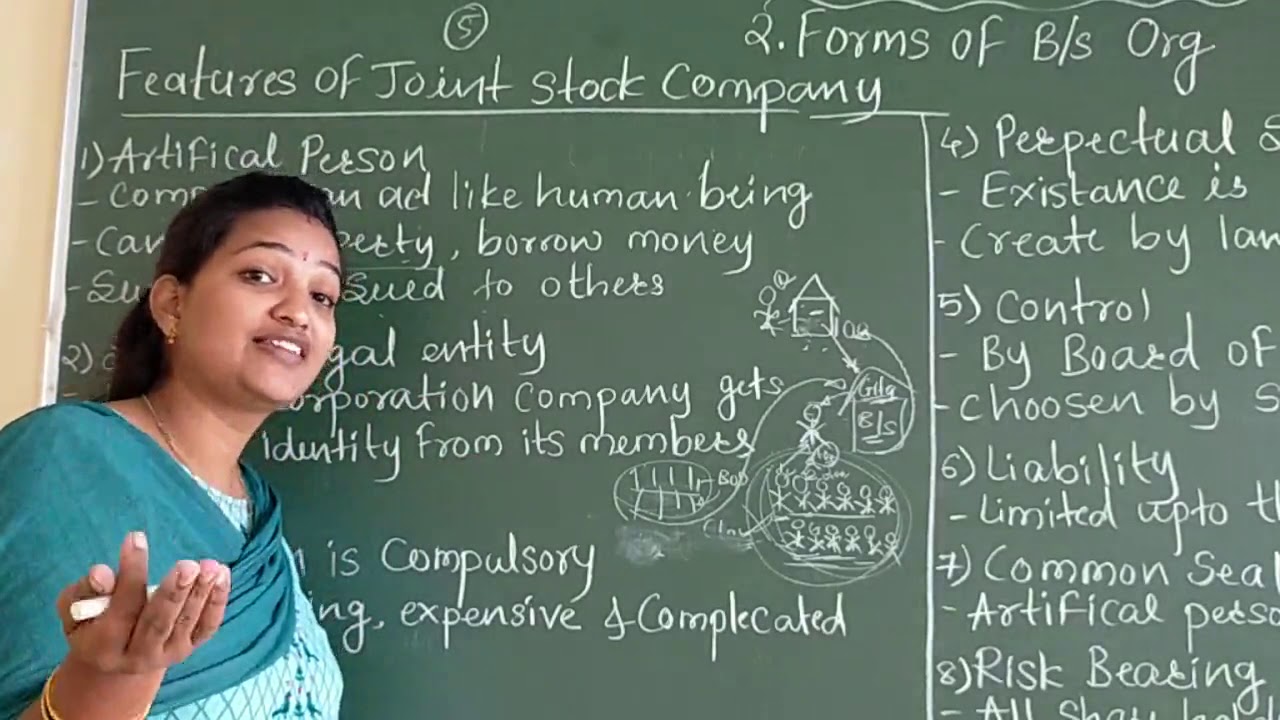 5
2. Forms of B/s Org
Features of Joint Stock Company
1) Artifical Person
- Comp an act like human being
- Can perty, borrow money
- Su Sued to others
2) gal entity
orporation Company gets
Identity from its members
n is Compulsory
ing, expensive & Complecated
B/s
BOD
4) Perpectual S
- Existance is
- Create by law
5) Control
- By Board of
- Choosen by S
6) Liability
- Limited upto th
7) Common Seal
- Artifical perso
8) Risk Bearing
- All Shar